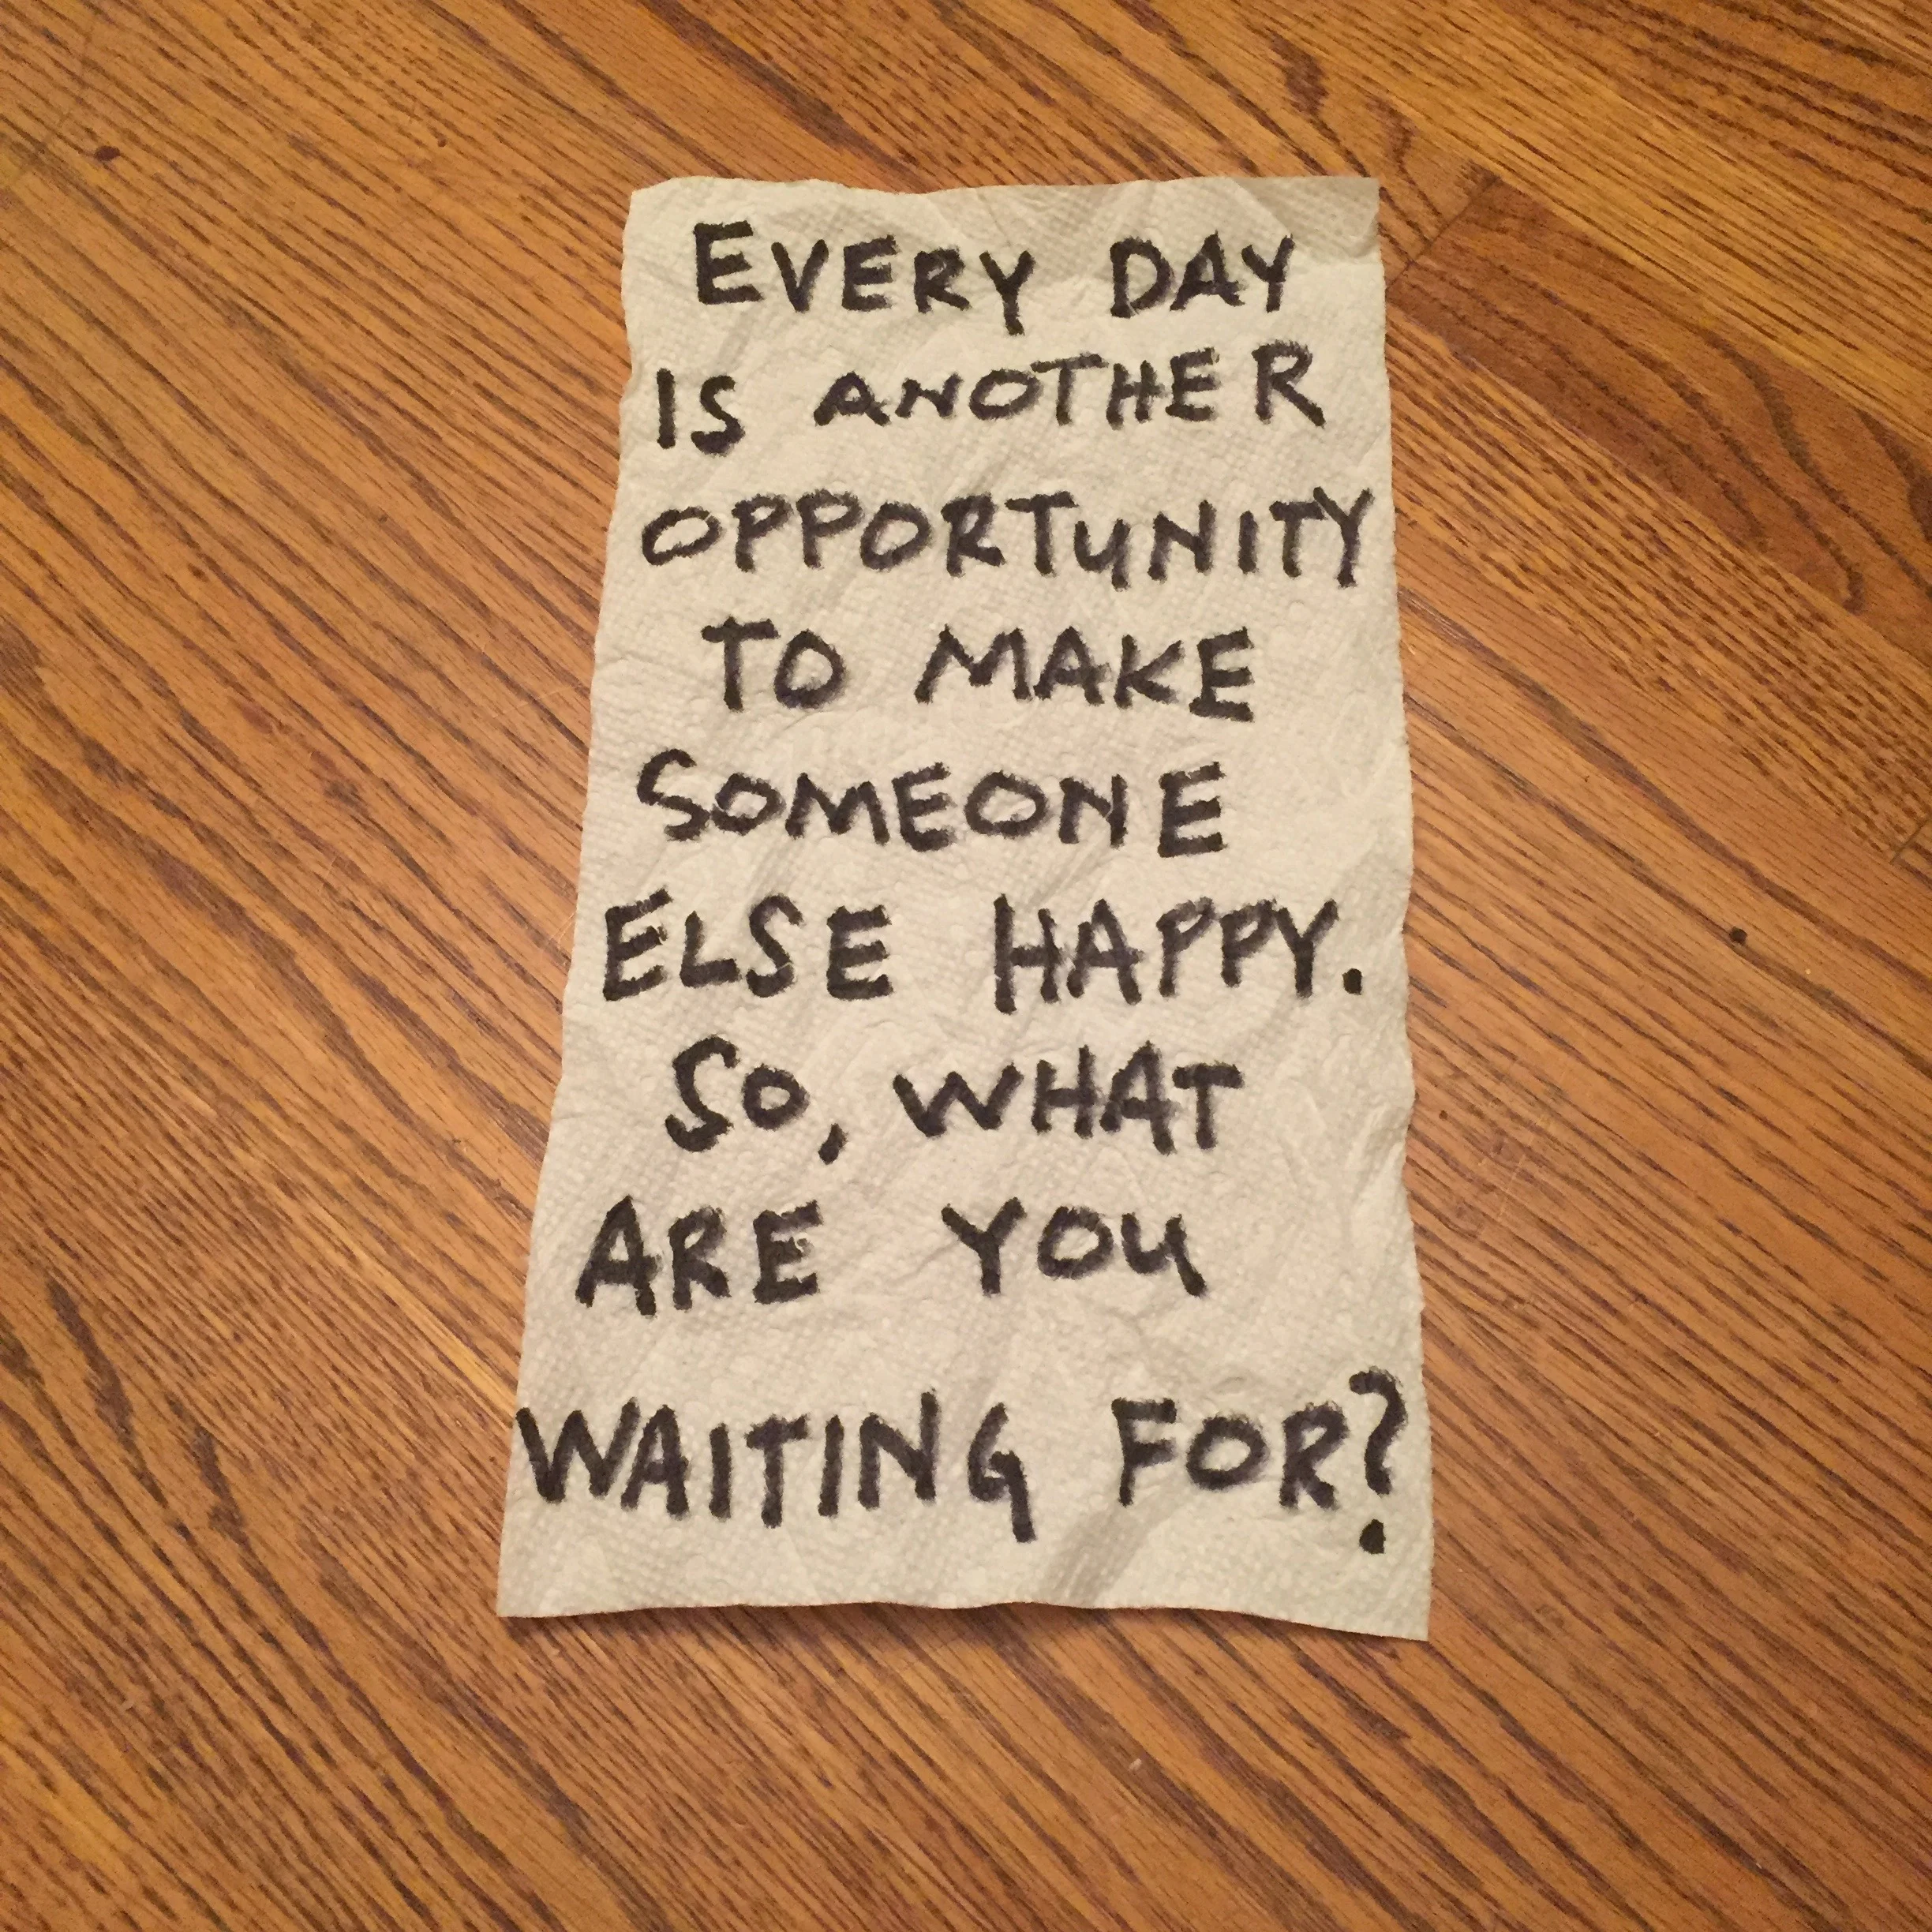 EVERY DAY
IS ANOTHER
OPPORTUNITY
TO MAKE
SOMEONE
ELSE HAPPY.
SO, WHAT
ARE YOU
WAITING FOR?